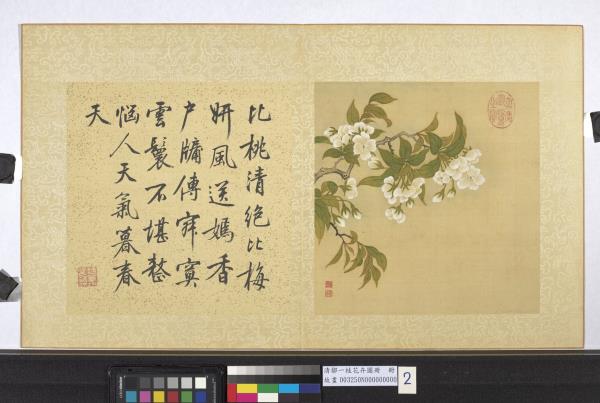 比桃清絕比梅
妍風送嫣香
户牖傳寂寞
雲鬟不堪整
惱人天氣暮春
天
清鄒一桂花卉圖冊
故畫 003250N000000000
2